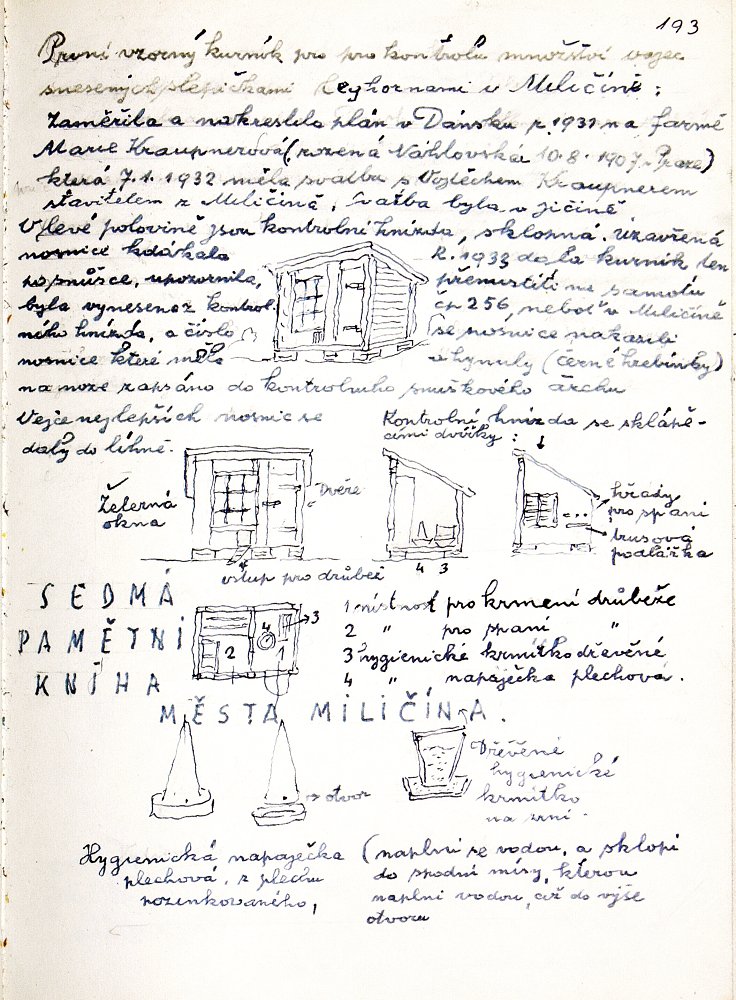 193
První vzorný kurník pro pro kontrolu množství vajec
snesených slepičkami leghornami v Miličíně:
Zaměřila a nakreslila plán v Dánsku r. 1931 na farmě
Marie Kraupnerová (rozená Náhlovská 10.8.1907 v Praze)
která 7.1.1932 měla svatbu s Vojtěchem Kraupnerem
stavitelem z Miličína, svatba byla v Jičíně
V levé polovině jsou kontrolní hnízda, sklopná. Uzavřená
nosnice kdákala
po snůšce, upozornila,
byla vynesena z kontrol
ního hnízda, a číslo
nosnice které měla
R. 1933 dala kurník ten
přemístiti na samotu
čp 256, neboť v Miličíně
se nosnice nakazili
a hynuly (černé hřebínky)
na noze zapsáno do kontrolního snůškového archu
Vejce nejlepších nosnic se
daly do líhně.
Kontrolní hnízda se sklápě-
cími dvířky:
Železná
okna
Dveře
hřady
pro spaní
trusová
podlážka
4 3
vstup pro drůbež
SEDMÁ
PAMĚTNÍ
KNIHA
MĚSTA MILIČÍNA.
3
4
2
1
1 místnost pro krmení drůbeže
2 " pro spaní "
3 hygienické krmítko dřevěné
4 " napaječka plechová.
otvor
Dřěvěné
hygienické
krmítko
na zrní.
Hygienická napaječka
plechová, z plechu
pozinkovaného,
(naplní se vodou, a sklopí
do spodní mísy, kterou
naplní vodou, až do výše
otvoru